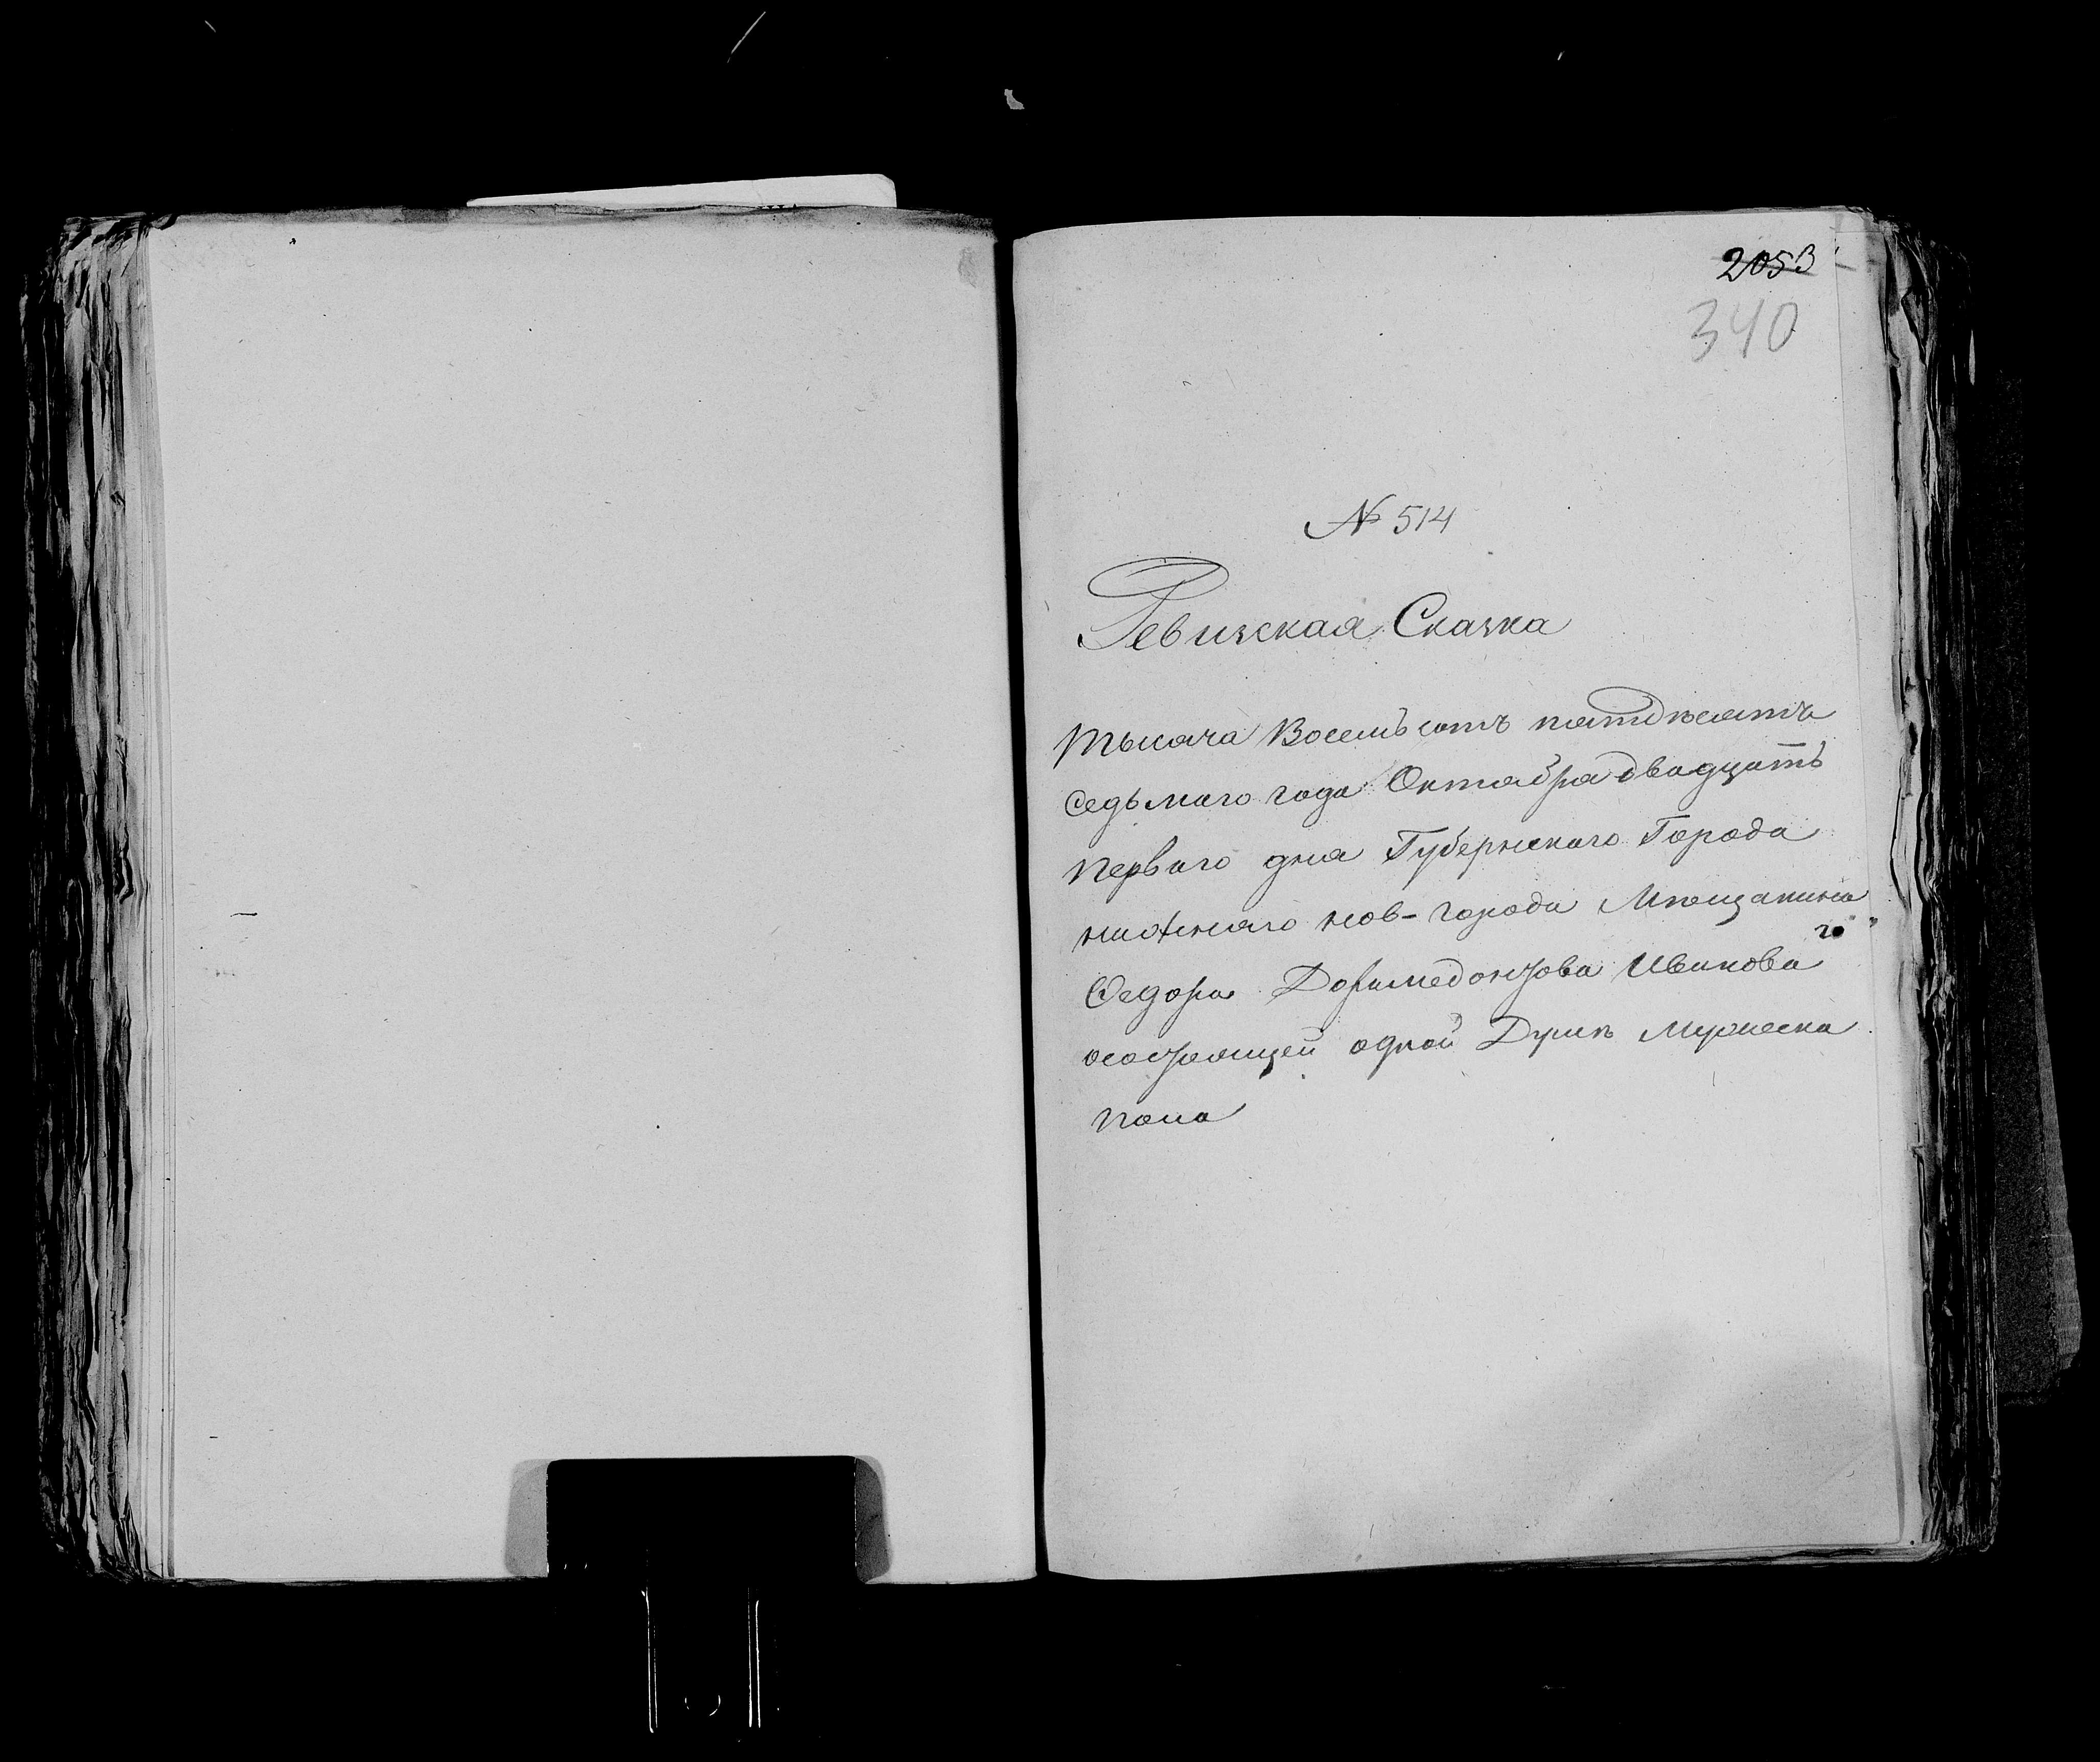 2053
340
№ 514
Ревизская Сказка
тысяча Восемьсотъ пятдѣсятъ
седьмаго года Октября двадцать
перваго дня Губернскаго Города
нижняго нов-города Мѣщанина
Федора Доримедонтова Иванова го
осостоящей одной Душѣ мужеска
пола